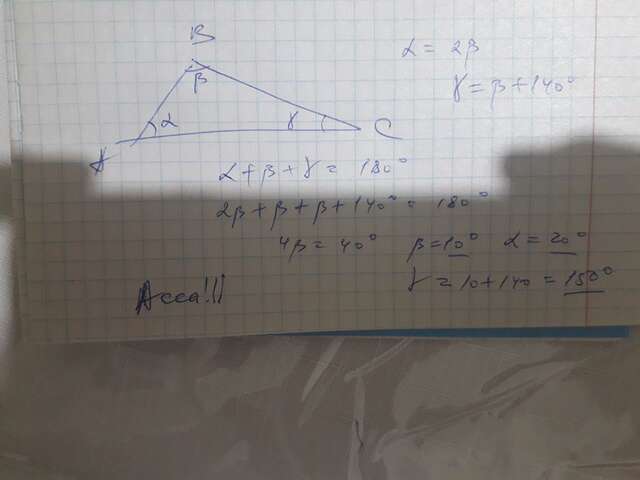 B
β
α
γ
A
C
α = 2β
γ = β + 140°
α + β + γ = 180°
2β + β + β + 140° = 180°
4β = 40° β = 10° α = 20°
γ = 10 + 140 = 150°
Acca!!!